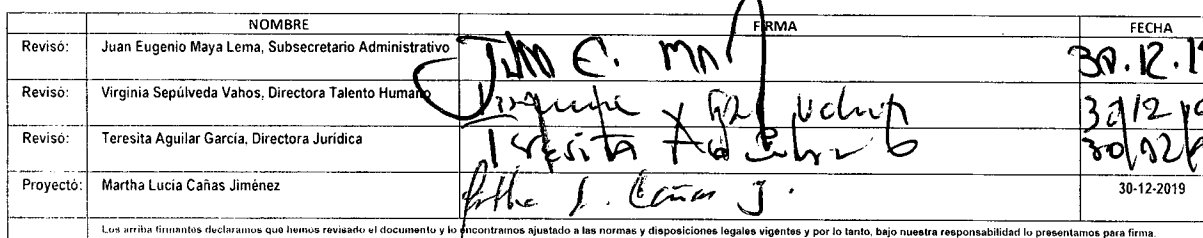 NOMBRE FIRMA FECHA
Revisó: Juan Eugenio Maya Lema, Subsecretario Administrativo 30.12.19
Revisó: Virginia Sepúlveda Vahos, Directora Talento Humano 30/12/19
Revisó: Teresita Aguilar García, Directora Jurídica Teresita Aguilar G 30/12/19
Proyectó: Martha Lucía Cañas Jiménez Cañas J. 30-12-2019
Los arriba firmantes declaramos que hemos revisado el documento y lo encontramos ajustado a las normas y disposiciones legales vigentes y por lo tanto, bajo nuestra responsabilidad lo presentamos para firma.